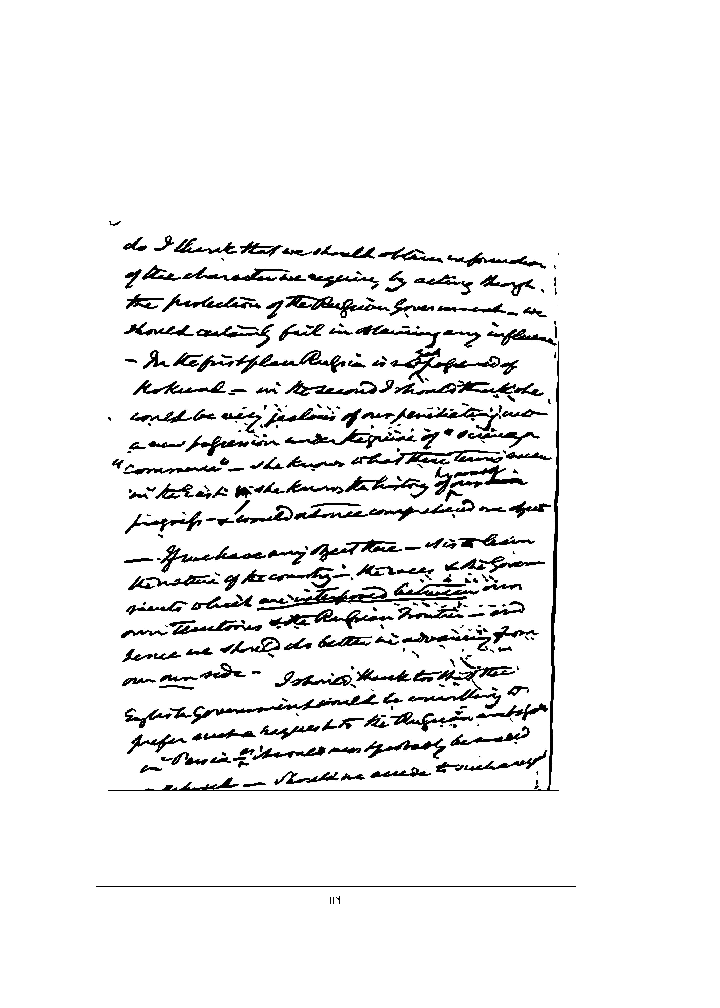 do I think that we should obtain information
of the character we require, by acting through
the protection of the Russian Government – we
should certainly fail in obtaining any influence
– In the first place Russia is not possessed of
Kokund – in the second I should think she
would be very jealous of our penetrating into
a new possession under the guise of "science or
"commerce" – she knows what these terms mean
in the East & she knows the history of
progress – & would at once comprehend our object
– If we have any object there – it is to learn
the nature of the country – the races & the Govern
ments which are interposed between our
own Territories & the Russian Frontier – and
hence we should do better in advancing from
our own side – I should think too that the
English Government would be unwilling to
prefer such a request to the Russian
in Russia as it would most probably be asked
– should we accede to such a request